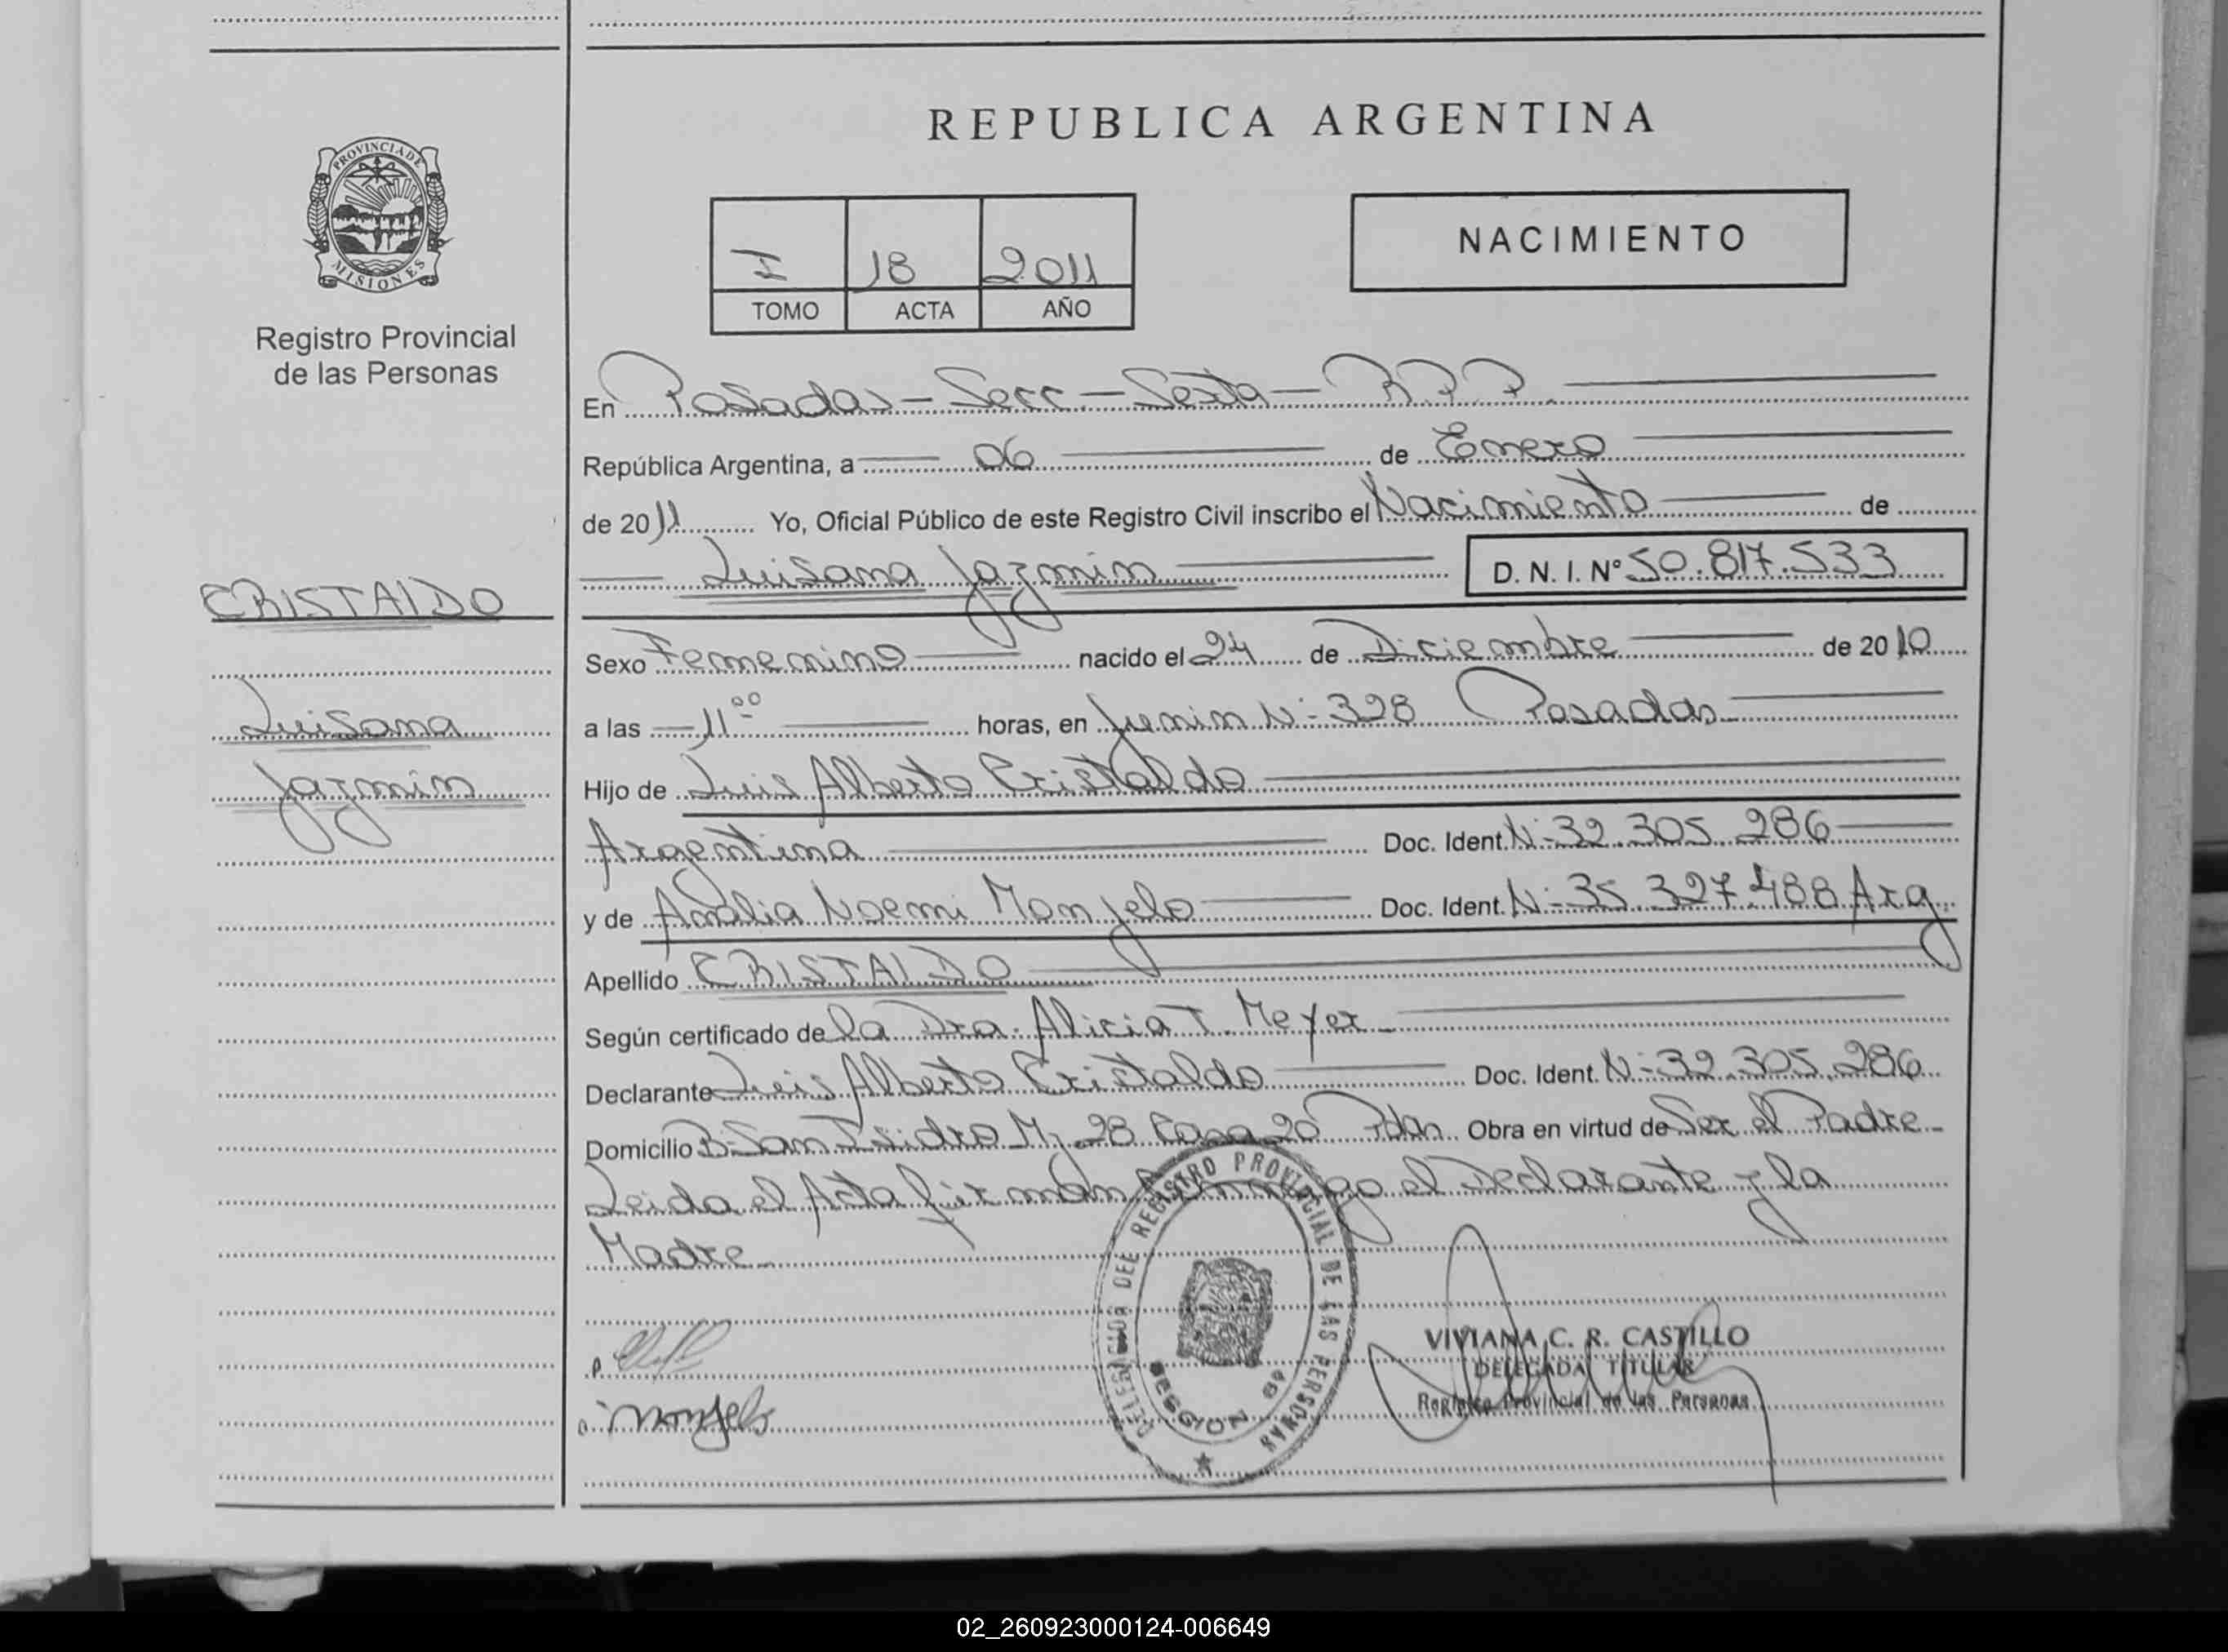 PROVINCIA DE
MISIONES
Registro Provincial
de las Personas
CRISTALDO
Luisana
Jazmin
REPUBLICA ARGENTINA
I 18 2011
TOMO ACTA AÑO
NACIMIENTO
En Posadas - Secc - Sexta - R.P.P.
República Argentina, a 06 de Enero
de 2011 Yo, Oficial Público de este Registro Civil inscribo el Nacimiento de
Luisana Jazmin D. N. I. N° 50.817.533
Sexo Femenino nacido el 24 de Diciembre de 2010
a las 11°° horas, en Junin N- 328 Posadas
Hijo de Luis Alberto Cristaldo
Argentina Doc. Ident. N- 32.305.286
y de Amalia Noemi Monjelo Doc. Ident. N- 35.327.488 Arg
Apellido CRISTALDO
Según certificado de la Dra. Alicia T. Meyer
Declarante Luis Alberto Cristaldo Doc. Ident. N- 32.305.286
Domicilio B- San Isidro Mz 28 Casa 20 Pdas. Obra en virtud de Ser el Padre
Leida el Acta firman conmigo el Declarante y la
Madre
DELEGACION DEL REGISTRO PROVINCIAL DE LAS PERSONAS
SECCION 6ª
Monjelo
VIVIANA C. R. CASTILLO
DELEGADA TITULAR
Registro Provincial de las Personas
02_260923000124-006649